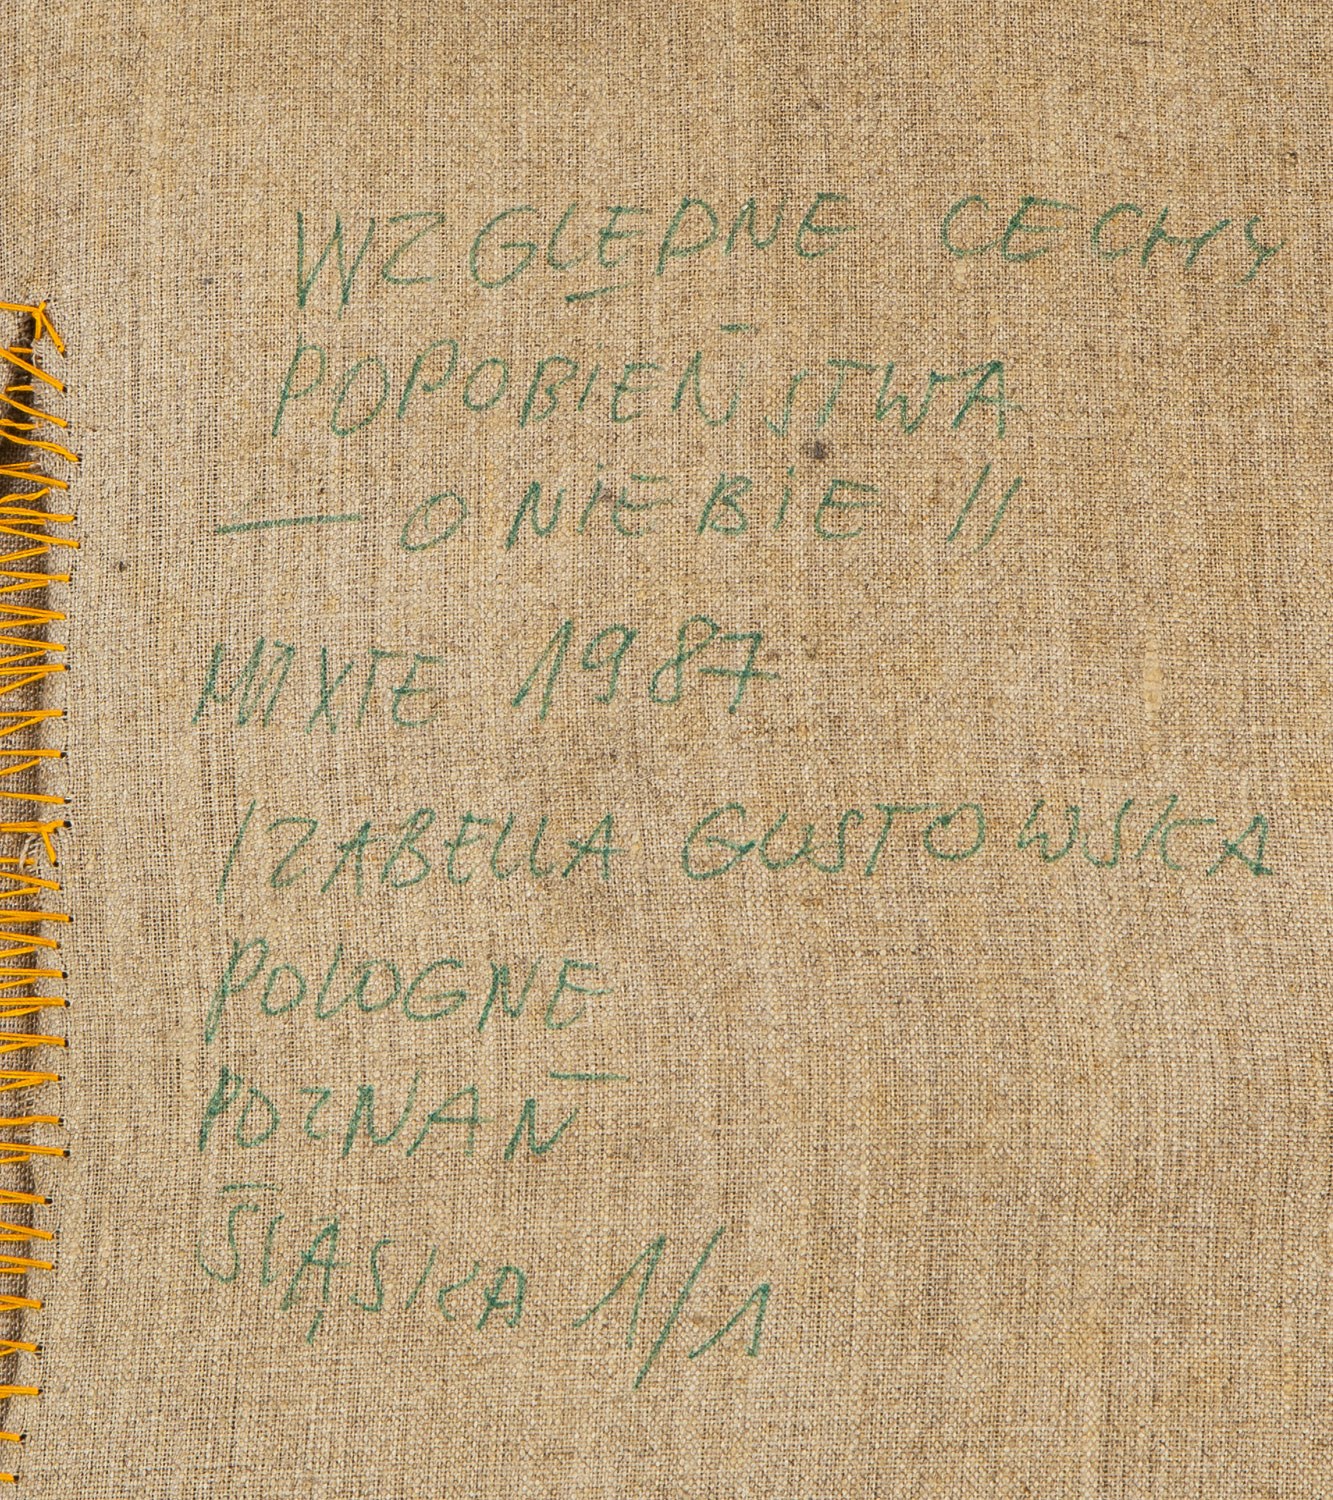 WZGLĘDNE CECHY
PODOBIEŃSTWA
— O NIEBIE II
MIXTE 1987
IZABELLA GUSTOWSKA
POLOGNE
POZNAŃ
ŚLĄSKA 1/1